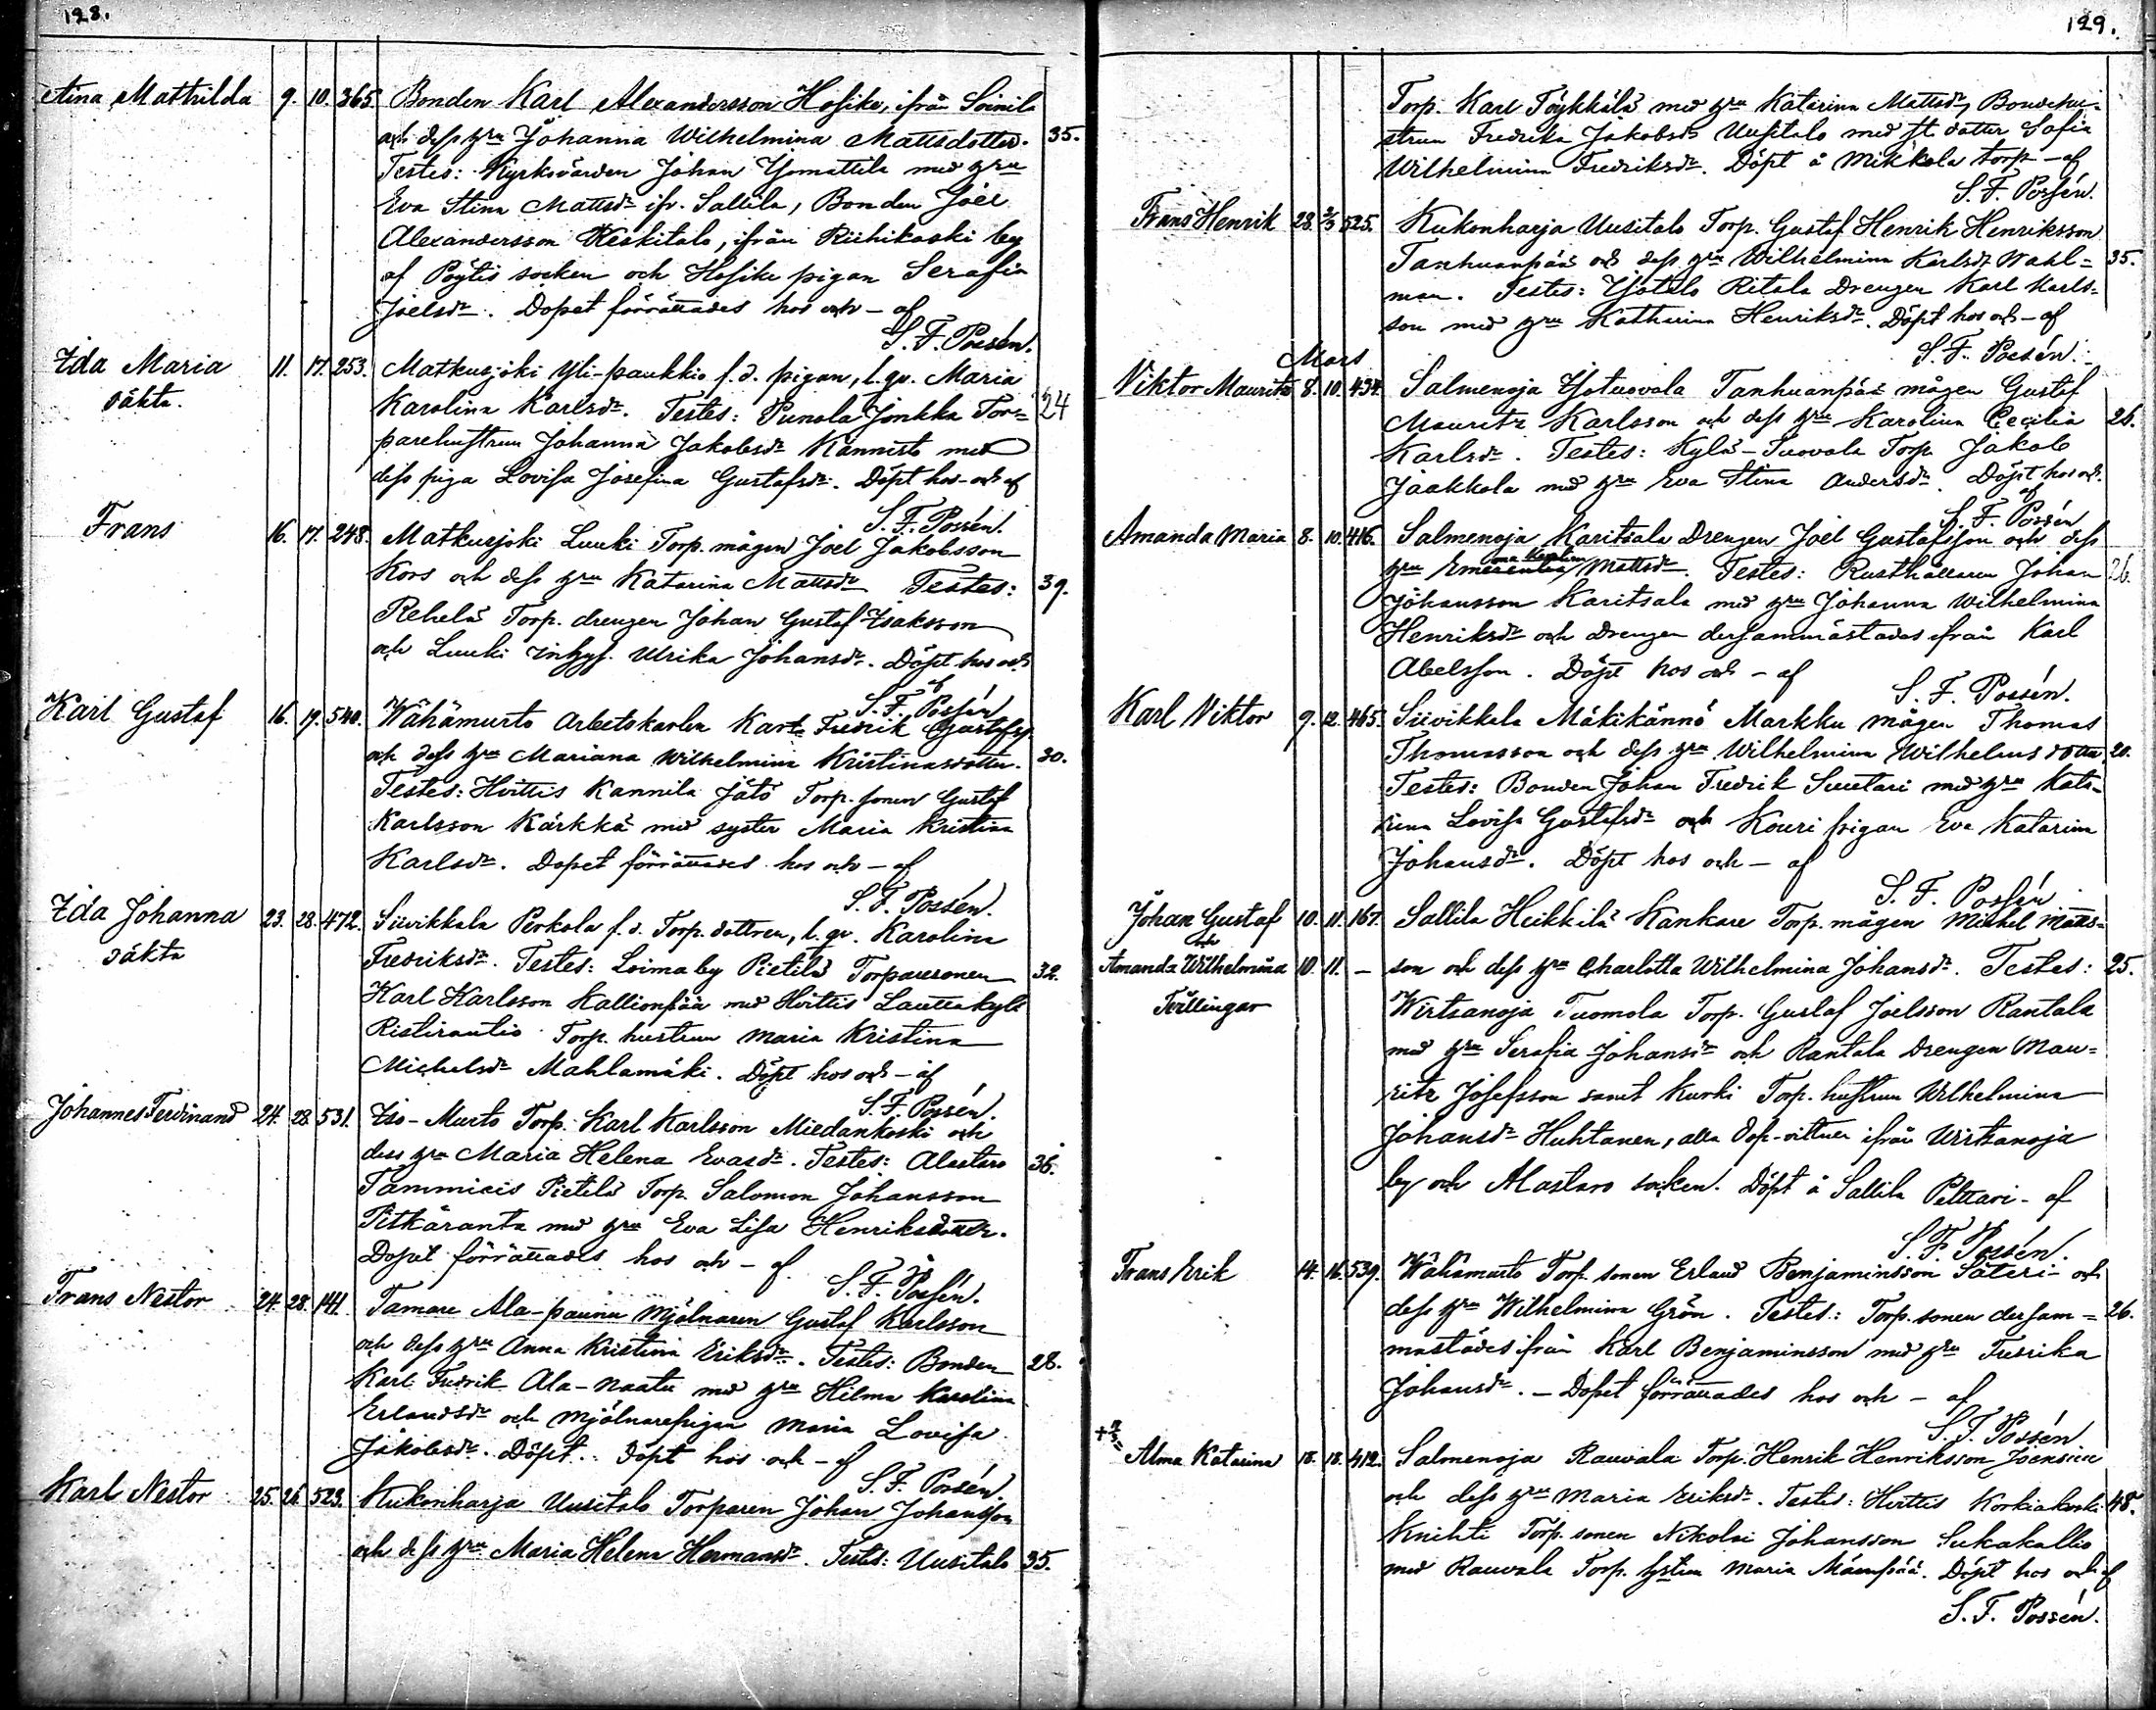 128.
Stina Mathilda 9. 10. 365. Bonden Karl Alexandersson Hosike, ifrån Soinila
och dess hru Johanna Wilhelmina Mattsdotter. 35.
Testes: Kyrkovärden Johan Yomattila med hru
Eva Stina Mattsdr ifr. Sallila, Bonden Joel
Alexandersson Keskitalo, ifrån Riihikoski by
af Pöytis socken och Hosike pigan Serafia
Joelsdr. Dopet förrättades hos och - af
S. F. Possén.
Ida Maria 11. 17. 253. Matkusjoki Yli-paukkio f. d. pigan, l. qv. Maria
oäkta. Karolina Karlsdr. Testes: Punola Jonkka Tor= 24
parehustrun Johanna Jakobsdr Kannisto med
dess piga Lovisa Josefina Gustafsdr. Döpt hos och af
S. F. Possén.
Frans 16. 17. 248. Matkusjoki Luuki Torp. mågen Joel Jakobsson
Kors och dess hru Katarina Mattsdr Testes: 39.
Rehelä Torp. drengen Johan Gustaf Isaksson
och Luuki inhys. Ulrika Johansdr. Döpt hos och
af
S. F. Possén
Karl Gustaf 16. 19. 540. Wähämurto Arbetskarlen Karl Fredrik Gustafss.
och dess hru Mariana Wilhelmina Kristinasdotter. 30.
Testes: Hvittis Kannila Jätö Torp. sonen Gustaf
Karlsson Kärkkä med syster Maria Kristina
Karlsdr. Dopet förrättades hos och - af
S. F. Possén.
Ida Johanna 23. 28. 472. Siivikkala Perkola f. d. Torp. dottren, l. qv. Karolina
oäkta Fredriksdr. Testes: Loimaby Pietilä Torparesonen 32.
Karl Karlsson Kallionpää med Hvittis Lauttakylä
Ristirautio Torp. hustrun Maria Kristina
Michelsdr Mahlamäki. Döpt hos och - af
S. F. Possén.
Johannes Ferdinand 24. 28. 531. Iso-Murto Torp. Karl Karlsson Miedankoski och
dess hru Maria Helena Evasdr. Testes: Alastaro 36.
Tammiais Pietilä Torp. Salomon Johansson
Pitkäranta med hru Eva Lisa Henriksdotter.
Dopet förrättades hos och - af
S. F. Possén.
Frans Nestor 24. 28. 141. Tamare Ala-paunu Mjölnaren Gustaf Karlsson
och dess hru Anna Kristina Eriksdr. Testes: Bonden 28.
Karl Fredrik Ala-Naatu med hru Hilma Karolina
Erlandsdr och Mjölnarepigan Maria Lovisa
Jakobsdr. Döpt. Döpt hos och - af
S. F. Possén.
Karl Nestor 25. 26. 523. Kukonharja Uusitalo Torparen Johan Johansson
och dess hru Maria Helena Hermansdr. Testes: Uusitalo 35.
129.
Torp. Karl Töykkälä med hru Katarina Mattsdr, Bondehu=
strun Fredrika Jakobsdr Uusitalo med st. dotter Sofia
Wilhelmina Fredriksdr. Döpt å Mikkola torp - af
S. F. Possén.
Frans Henrik 28. 2/3 525. Kukonharja Uusitalo Torp. Gustaf Henrik Henriksson
Tanhuanpää och dess hru Wilhelmina Karlsdr Wahl= 35.
man. Testes: Ylotalo Ritala Drengen Karl Karls=
son med hru Katharina Henriksdr. Döpt hos och - af
S. F. Possén.
Mars
Viktor Mauritz 8. 10. 434. Salmenoja Ylotuovala Tanhuanpää mågen Gustaf
Mauritz Karlsson och dess hru Karolina Cecilia 26.
Karlsdr. Testes: Kylä-Tuovala Torp. Jakob
Jaakkola med hru Eva Stina Andersdr. Döpt hos och
af
S. F. Possén
Amanda Maria 8. 10. 416. Salmenoja Karitsala Drengen Joel Gustafsson och dess
hru Emerentia Mattsdr. Testes: Rusthållaren Johan 26.
Johansson Karitsala med hru Johanna Wilhelmina
Henriksdr och Drengen dersammastädes ifrån Karl
Abelsson. Döpt hos och - af
S. F. Possén.
Karl Viktor 9. 12. 465. Siivikkala Mäkikännö Markku mågen Thomas
Thomasson och dess hru Wilhelmina Wilhelmsdotter 20.
Testes: Bonden Johan Fredrik Suutari med hru Kata=
rina Lovisa Gustafsdr och Kouri pigan Eva Katarina
Johansdr. Döpt hos och - af
S. F. Possén
Johan Gustaf 10. 11. 167. Sallila Heikkilä Kankare Torp. mågen Mikkel Matts=
och
Amanda Wilhelmina 10. 11. - son och dess hru Charlotta Wilhelmina Johansdr. Testes: 25.
Tvillingar Wirtsanoja Tuomola Torp. Gustaf Joelsson Rantala
med hru Serafia Johansdr och Rantala Drengen Mau=
ritz Josefsson samt Kurki Torp. hustrun Wilhelmina
Johansdr Huhtanen, alla dop-vittnen ifrån Wirtsanoja
by och Alastaro socken. Döpt å Sallila Pelttari - af
S. F. Possén.
Frans Erik 14. 16. 539. Wähämurto Torp. sonen Erland Benjaminsson Säteri - och
dess hru Wilhelmina Grön. Testes: Torp. sonen dersam= 26.
mastädes ifrån Karl Benjaminsson med hru Fredrika
Johansdr. - Dopet förrättades hos och - af
S. F. Possén
Alma Katarina 18. 18. 412. Salmenoja Rauvala Torp. Henrik Henriksson Joensuu
och dess hru Maria Eriksdr. Testes: Hvittis Korkiakoski 48.
Knihti Torp. sonen Nikolai Johansson Sukakallio
med Rauvala Torp. hustrun Maria Mäenpää. Döpt hos och af
S. F. Possén.